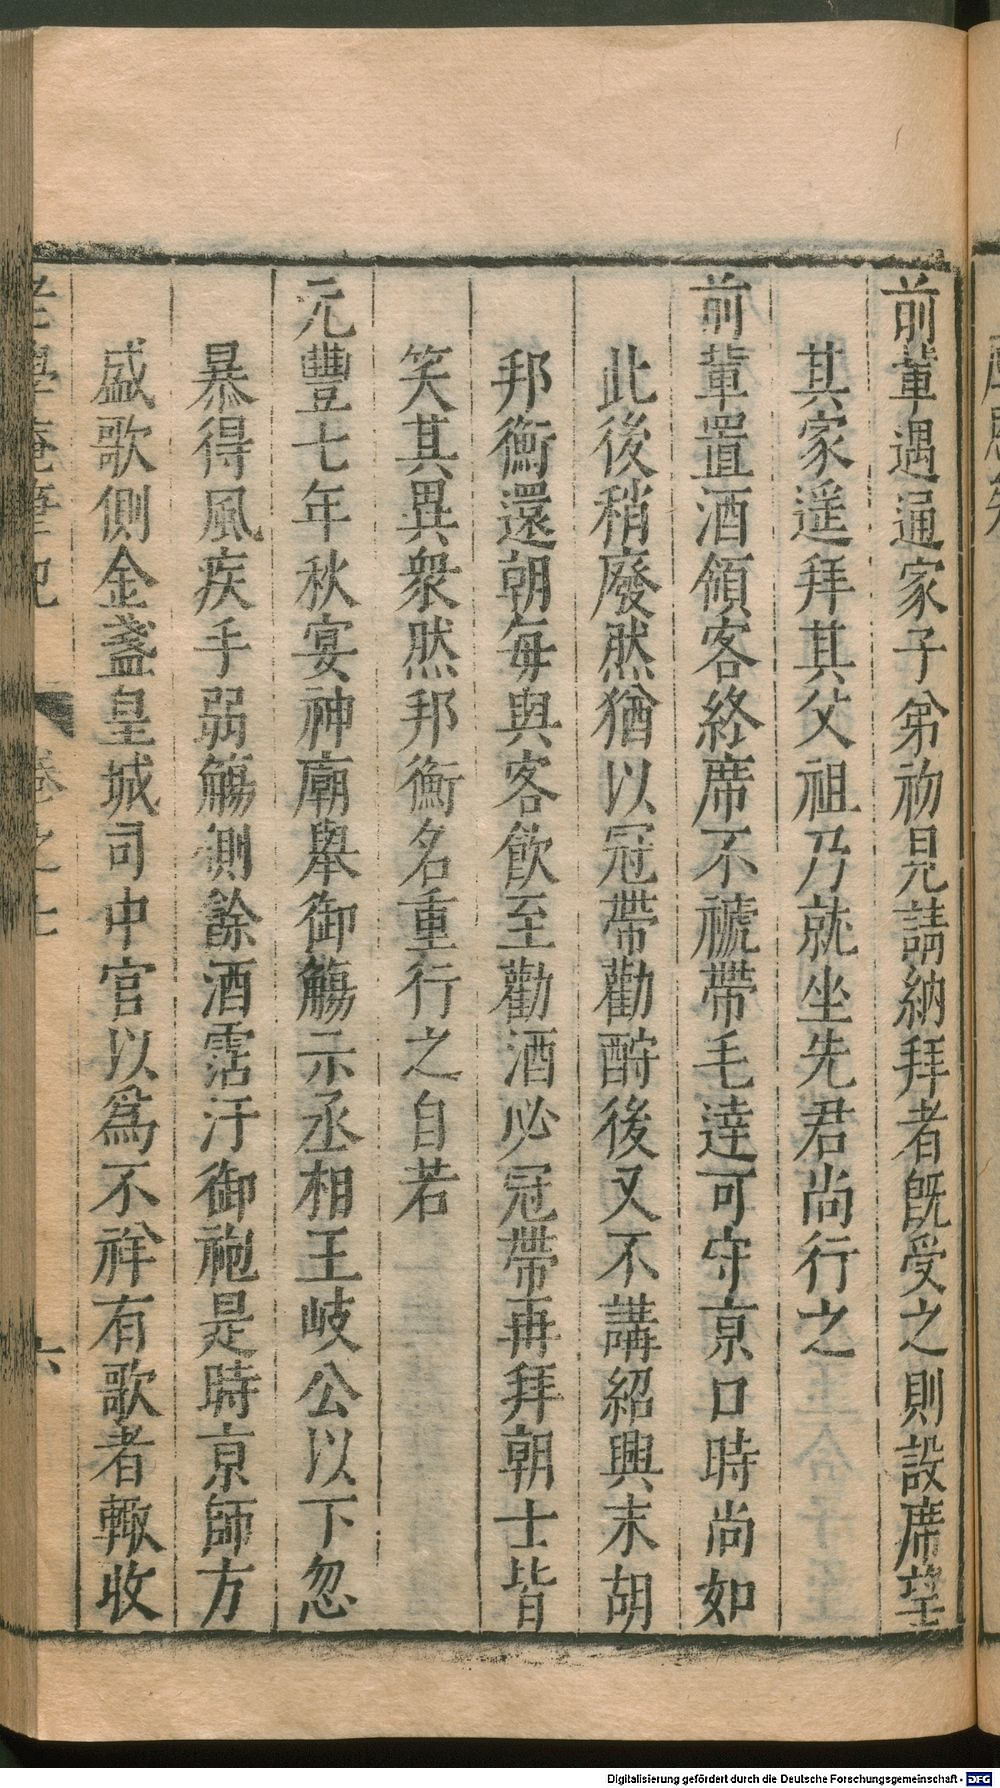 前輩遇通家子弟初見請納拜者既受之則設席望
其家遥拜其父祖乃就坐先君尚行之
前輩置酒領客終席不褫帶毛逹可守亰口時尚如
此後稍廢然猶以冠帶勸酧後又不講紹興末胡
邦衡還朝每與客飲至勸酒必冠帶再拜朝士皆
笑其異衆然邦衡名重行之自若
元豐七年秋宴神廟舉御觴示丞相王岐公以下忽
暴得風疾手弱觴側餘酒霑汙御袍是時亰師方
盛歌側金盞皇城司中官以爲不祥有歌者輙收
老學庵筆記
卷之七
六
Digitalisierung gefördert durch die Deutsche Forschungsgemeinschaft - DFG